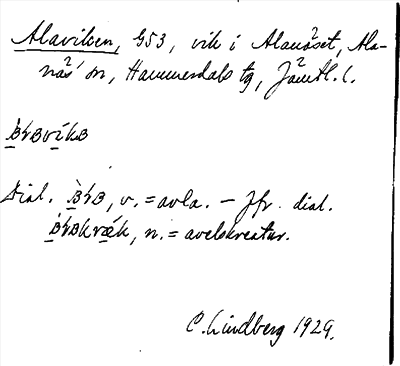 Alaviken, G53, vik i Alanäset, Ala-
näs sn, Hammerdals tg, Jämtl. l.
Dial. v. = avla. – Jfr. dial.
n. = avelskreatur.
C. Lindberg 1929.